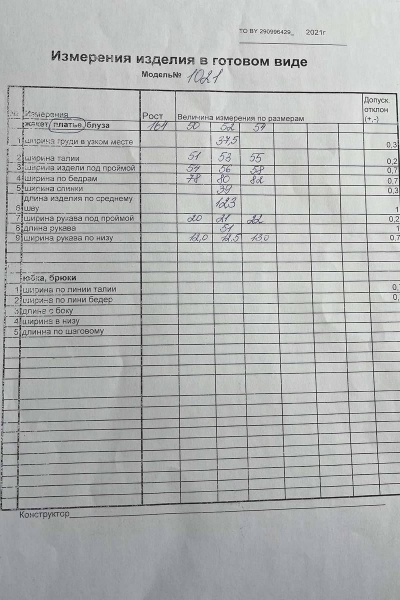 ТО BY 290996429_ 2021г
Измерения изделия в готовом виде
Модель№ 1021
№ Измерения Рост Величина измерения по размерам Допуск. отклон (+,-)
жакет, платье, блуза 164 50 52 54
1 ширина груди в узком месте 37,5 0,3
2 ширина талии 51 53 55 0,2
3 ширина издели под проймой 54 56 58 0,7
4 ширина по бедрам 78 80 82 0,7
5 шипина спинки 39 0,3
длина изделия по среднему
6 шву 123 1
7 ширина рукава под проймой 20 21 22 0,2
8 длина рукава 51 1
9 ширина рукава по низу 12,0 12,5 13,0 0,7
юбка, брюки
1 ширина по линии талии
2 ширина по лини бедер
3 длина с боку
4 ширина в низу
5 длинна по шаговому
Конструктор